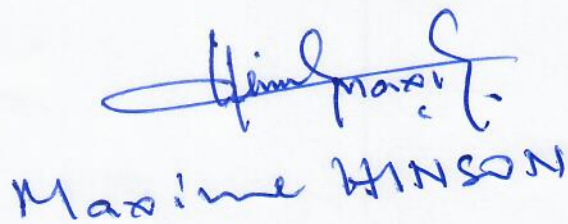 Maxime HINSON